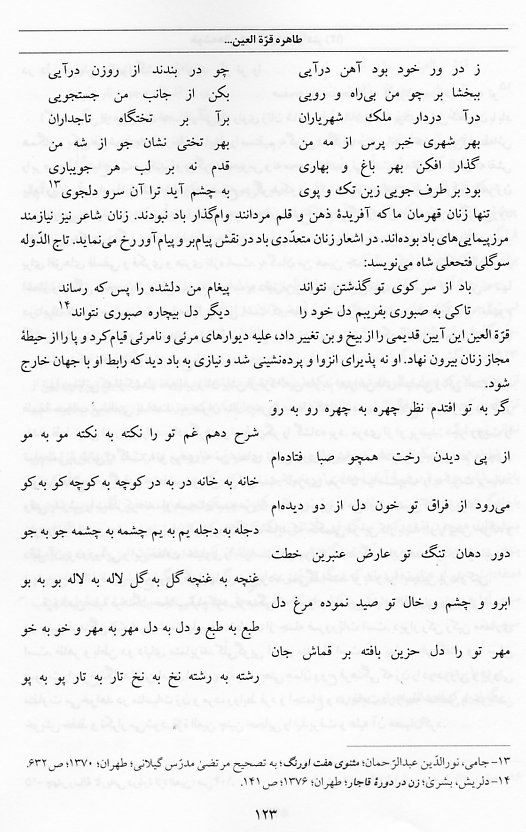 طاهره قرّة العین...
ز در ور خود بود آهن درآیی چو در بندند از روزن درآیی
ببخشا بر چو من بی‌راه و رویی بکن از جانب من جستجویی
درآ در دار ملک شهریاران برآ بر تختگاه تاجداران
بهر شهری خبر پرس از مه من بهر تختی نشان جو از شه من
گذار افکن بهر باغ و بهاری قدم نه بر لب هر جویباری
بود بر طرف جویی زین تک و پوی به چشم آید ترا آن سرو دلجوی۱۳
تنها زنان قهرمان ما که آفریدهٔ ذهن و قلم مردانند وام‌گذار باد نبودند. زنان شاعر نیز نیازمند
مرزپیمایی‌های باد بوده‌اند. در اشعار زنان متعدّدی باد در نقش پیام‌بر و پیام‌آور رخ می‌نماید. تاج الدّوله
سوگلی فتحعلی شاه می‌نویسد:
باد از سر کوی تو گذشتن نتواند پیغام من دلشده را پس که رساند
تا کی به صبوری بفریبم دل خود را دیگر دل بیچاره صبوری نتواند۱۴
قرّة العین این آیین قدیمی را از بیخ و بن تغییر داد، علیه دیوارهای مرئی و نامرئی قیام کرد و پا را از حیطهٔ
مجاز زنان بیرون نهاد. او نه پذیرای انزوا و پرده‌نشینی شد و نیازی به باد دید که رابط او با جهان خارج
شود.
گر به تو افتدم نظر چهره به چهره رو به رو
شرح دهم غم تو را نکته به نکته مو به مو
از پی دیدن رخت همچو صبا فتاده‌ام
خانه به خانه در به در کوچه به کوچه کو به کو
می‌رود از فراق تو خون دل از دو دیده‌ام
دجله به دجله یم به یم چشمه به چشمه جو به جو
دور دهان تنگ تو عارض عنبرین خطت
غنچه به غنچه گل به گل لاله به لاله بو به بو
ابرو و چشم و خال تو صید نموده مرغ دل
طبع به طبع و دل به دل مهر به مهر و خو به خو
مهر تو را دل حزین بافته بر قماش جان
رشته به رشته نخ به نخ تار به تار پو به پو
۱۳- جامی، نورالدّین عبدالرّحمان؛ مثنوی هفت اورنگ؛ به تصحیح مرتضیٰ مدرّس گیلانی؛ طهران؛ ۱۳۷۰؛ ص ۶۳۲.
۱۴- دلریش، بشریٰ؛ زن در دورهٔ قاجار؛ طهران؛ ۱۳۷۶؛ ص ۱۴۱.
۱۲۳